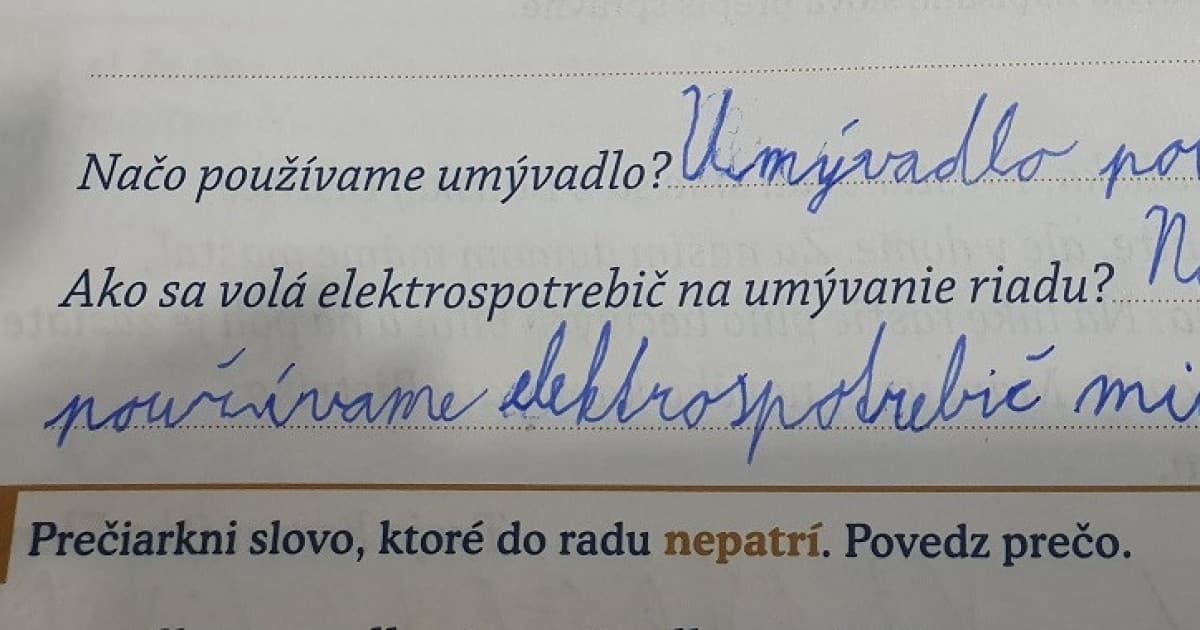 Načo používame umývadlo? Umývadlo
Ako sa volá elektrospotrebič na umývanie riadu?
používame elektrospotrebič
Prečiarkni slovo, ktoré do radu nepatrí. Povedz prečo.